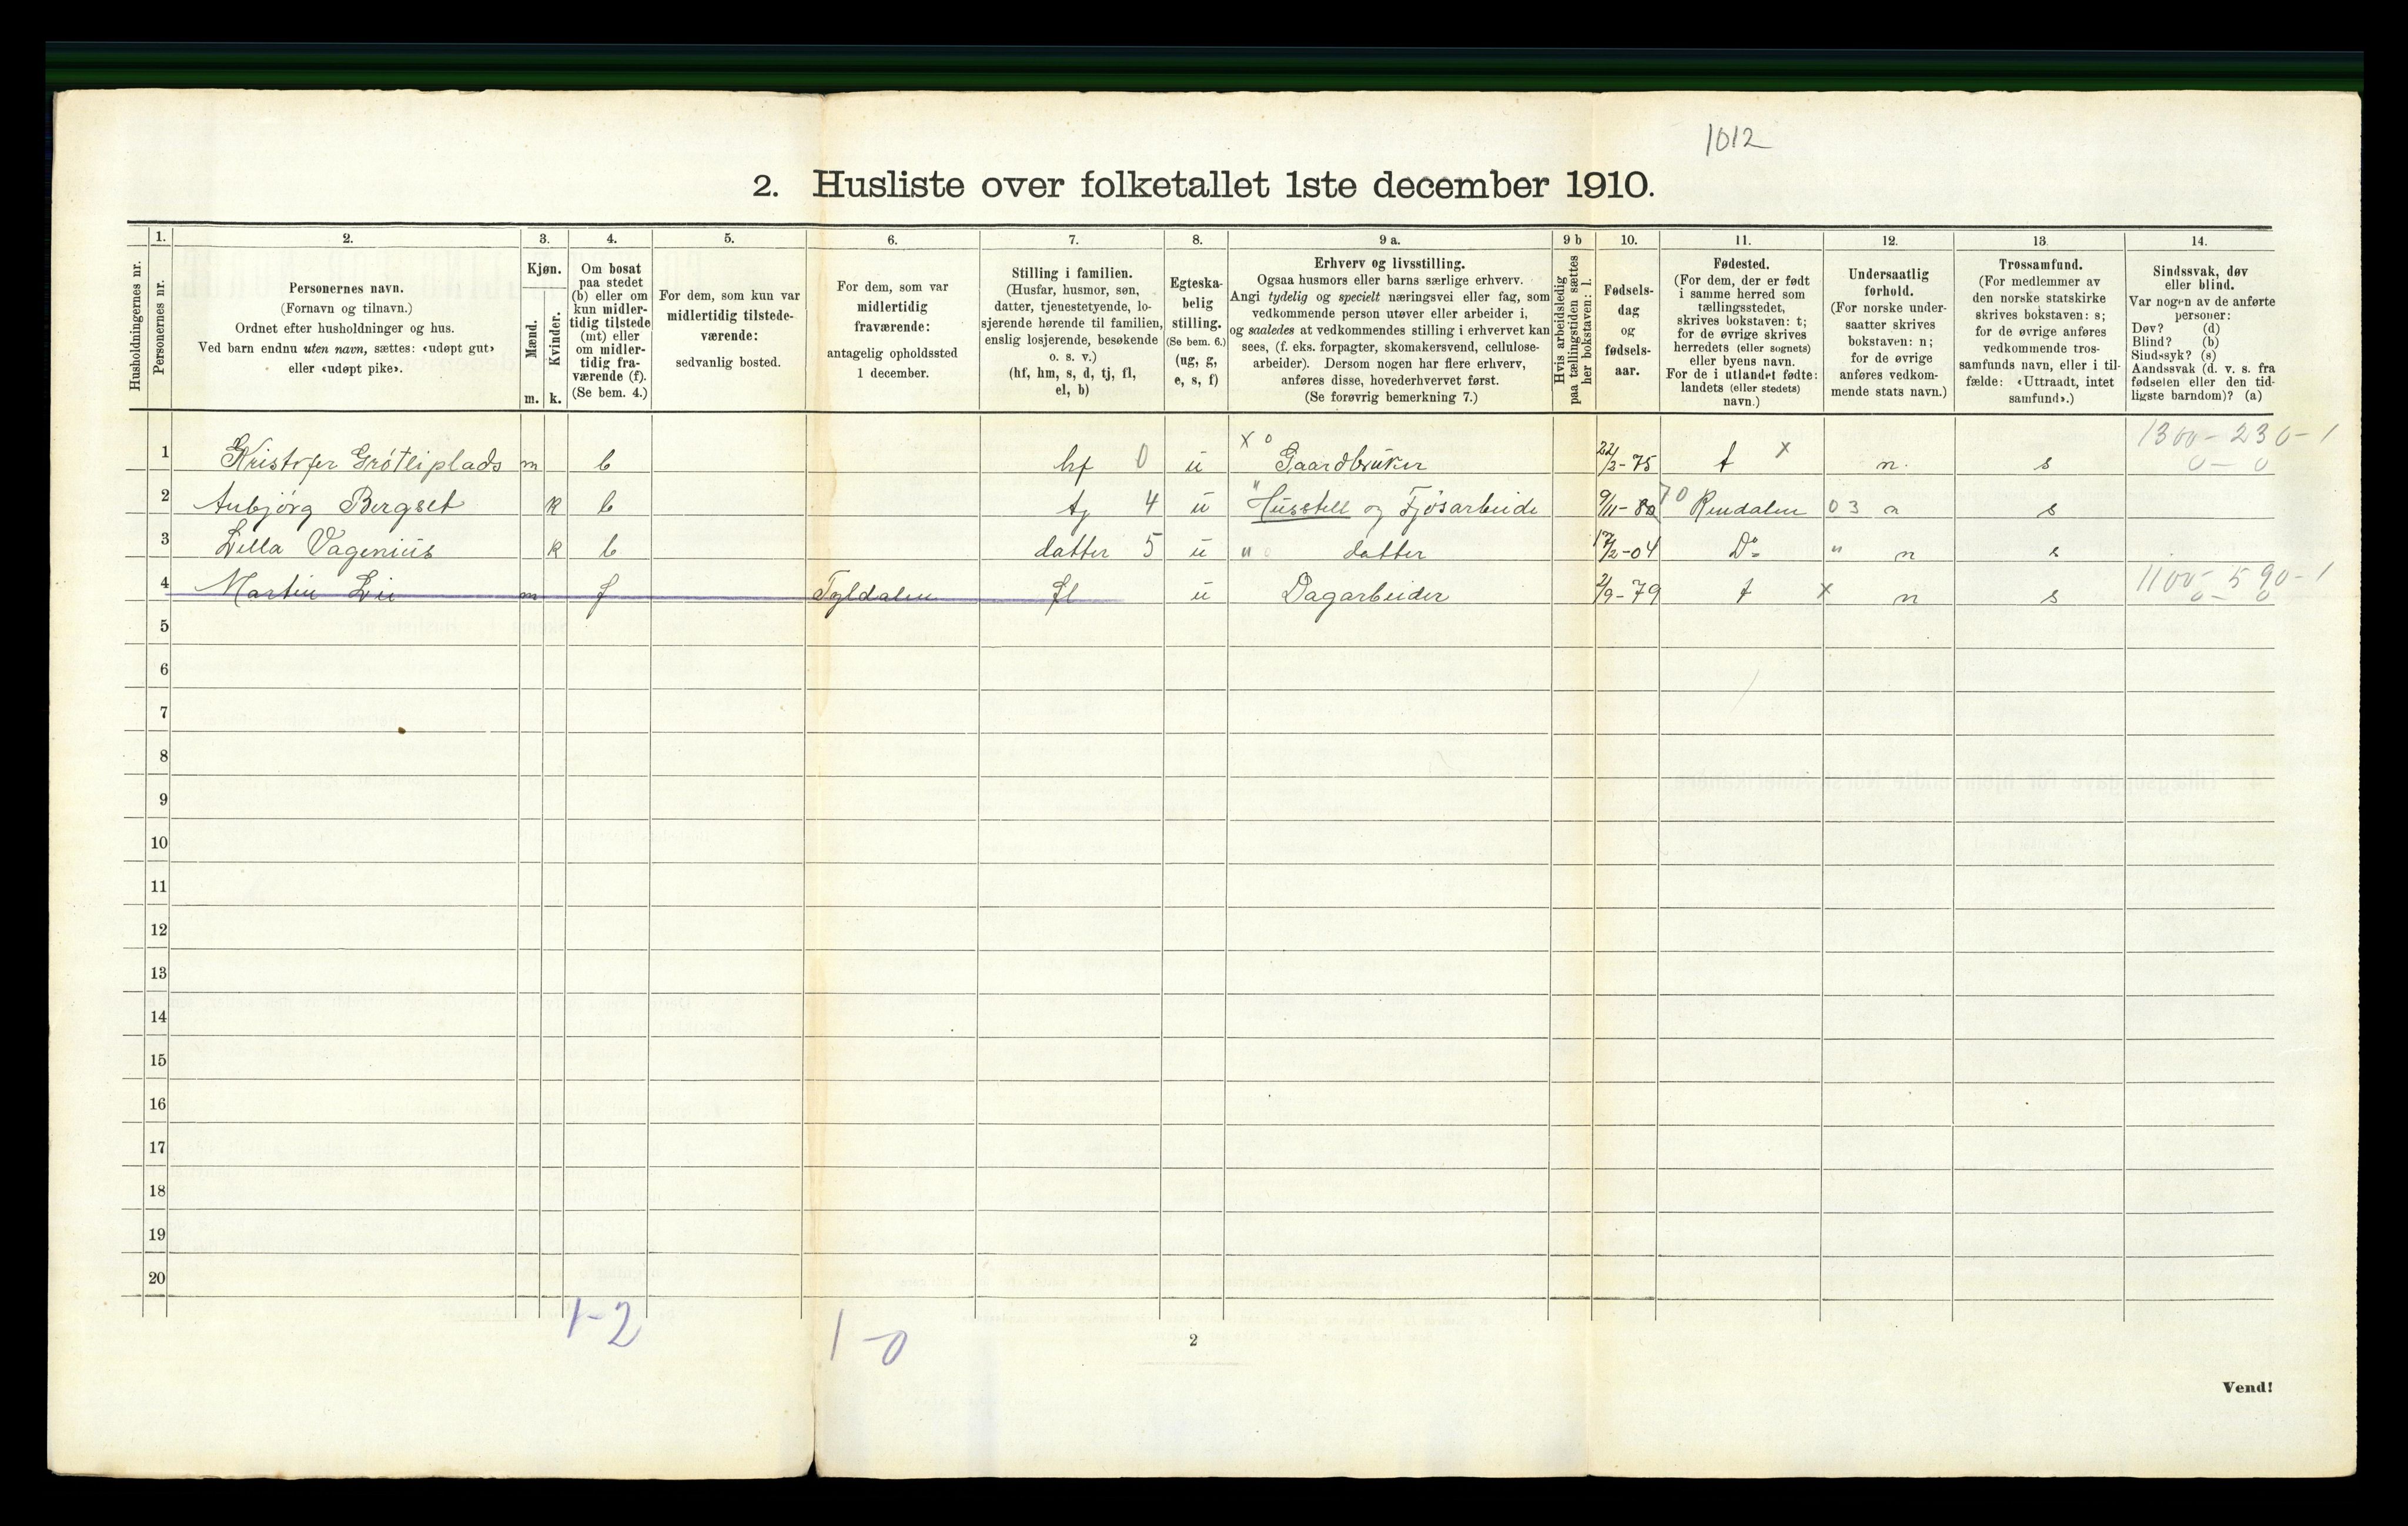 1012
2. Husliste over folketallet 1ste december 1910.
Husholdningernes nr.
1.
Personernes nr.
2.
Personernes navn.
(Fornavn og tilnavn.)
Ordnet efter husholdninger og hus.
Ved barn endnu uten navn, sættes: «udøpt gut»
eller «udøpt pike».
3.
Kjøn.
Mænd.
Kvinder.
m. k.
4.
Om bosat
paa stedet
(b) eller om
kun midler-
tidig tilstede
(mt) eller
om midler-
tidig fra-
værende (f).
(Se bem. 4.)
5.
For dem, som kun var
midlertidig tilstede-
værende:
sedvanlig bosted.
6.
For dem, som var
midlertidig
fraværende:
antagelig opholdssted
1 december.
7.
Stilling i familien.
(Husfar, husmor, søn,
datter, tjenestetyende, lo-
sjerende hørende til familien,
enslig losjerende, besøkende
o. s. v.)
(hf, hm, s, d, tj, fl,
el, b)
8.
Egteska-
belig
stilling.
(Se bem. 6.)
(ug, g,
e, s, f)
9 a.
Erhverv og livsstilling.
Ogsaa husmors eller barns særlige erhverv.
Angi tydelig og specielt næringsvei eller fag, som
vedkommende person utøver eller arbeider i,
og saaledes at vedkommendes stilling i erhvervet kan
sees, (f. eks. forpagter, skomakersvend, cellulose-
arbeider). Dersom nogen har flere erhverv,
anføres disse, hovederhvervet først.
(Se forøvrig bemerkning 7.)
9 b
Hvis arbeidsledig
paa tællingstiden sættes
her bokstaven: l.
10.
Fødsels-
dag
og
fødsels-
aar.
11.
Fødested.
(For dem, der er født
i samme herred som
tællingsstedet,
skrives bokstaven: t;
for de øvrige skrives
herredets (eller sognets)
eller byens navn.
For de i utlandet fødte:
landets (eller stedets)
navn.)
12.
Undersaatlig
forhold.
(For norske under-
saatter skrives
bokstaven: n;
for de øvrige
anføres vedkom-
mende stats navn.)
13.
Trossamfund.
(For medlemmer av
den norske statskirke
skrives bokstaven: s;
for de øvrige anføres
vedkommende tros-
samfunds navn, eller i til-
fælde: «Uttraadt, intet
samfund».)
14.
Sindssvak, døv
eller blind.
Var nogen av de anførte
personer:
Døv? (d)
Blind? (b)
Sindssyk? (s)
Aandssvak (d. v. s. fra
fødselen eller den tid-
ligste barndom)? (a)
1300 - 230 - 1
1 Kristofer Grötliplads m b hf 0 u x o Gaardbruker 22/2-75 t x n. s 0 - 0
2 Anbjörg Bergset k b tj 4 u " Husstell og Fjösarbeide 9/11-80 70 Rendalen 03 n s
3 Lilla Vagenius k b datter 5 u " datter 17/2-04 Do " n s
1100 - 590 - 1
4 Martin Lie m f Tyldalen fl u Dagarbeider 2/9-79 t x n s 0 - 0
5
6
7
8
9
10
11
12
13
14
15
16
17
18
19
20
1-2
1-0
2
Vend!